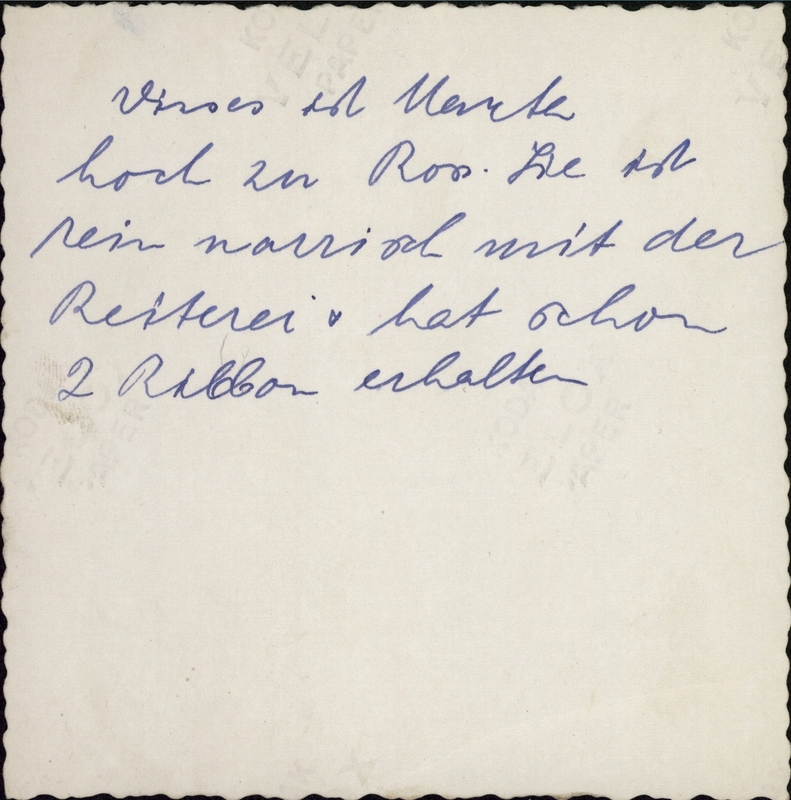 Dieses ist
hoch zu Ross. Sie ist
rein narrisch mit der
Reiterei & hat schon
2 Ribbon erhalten